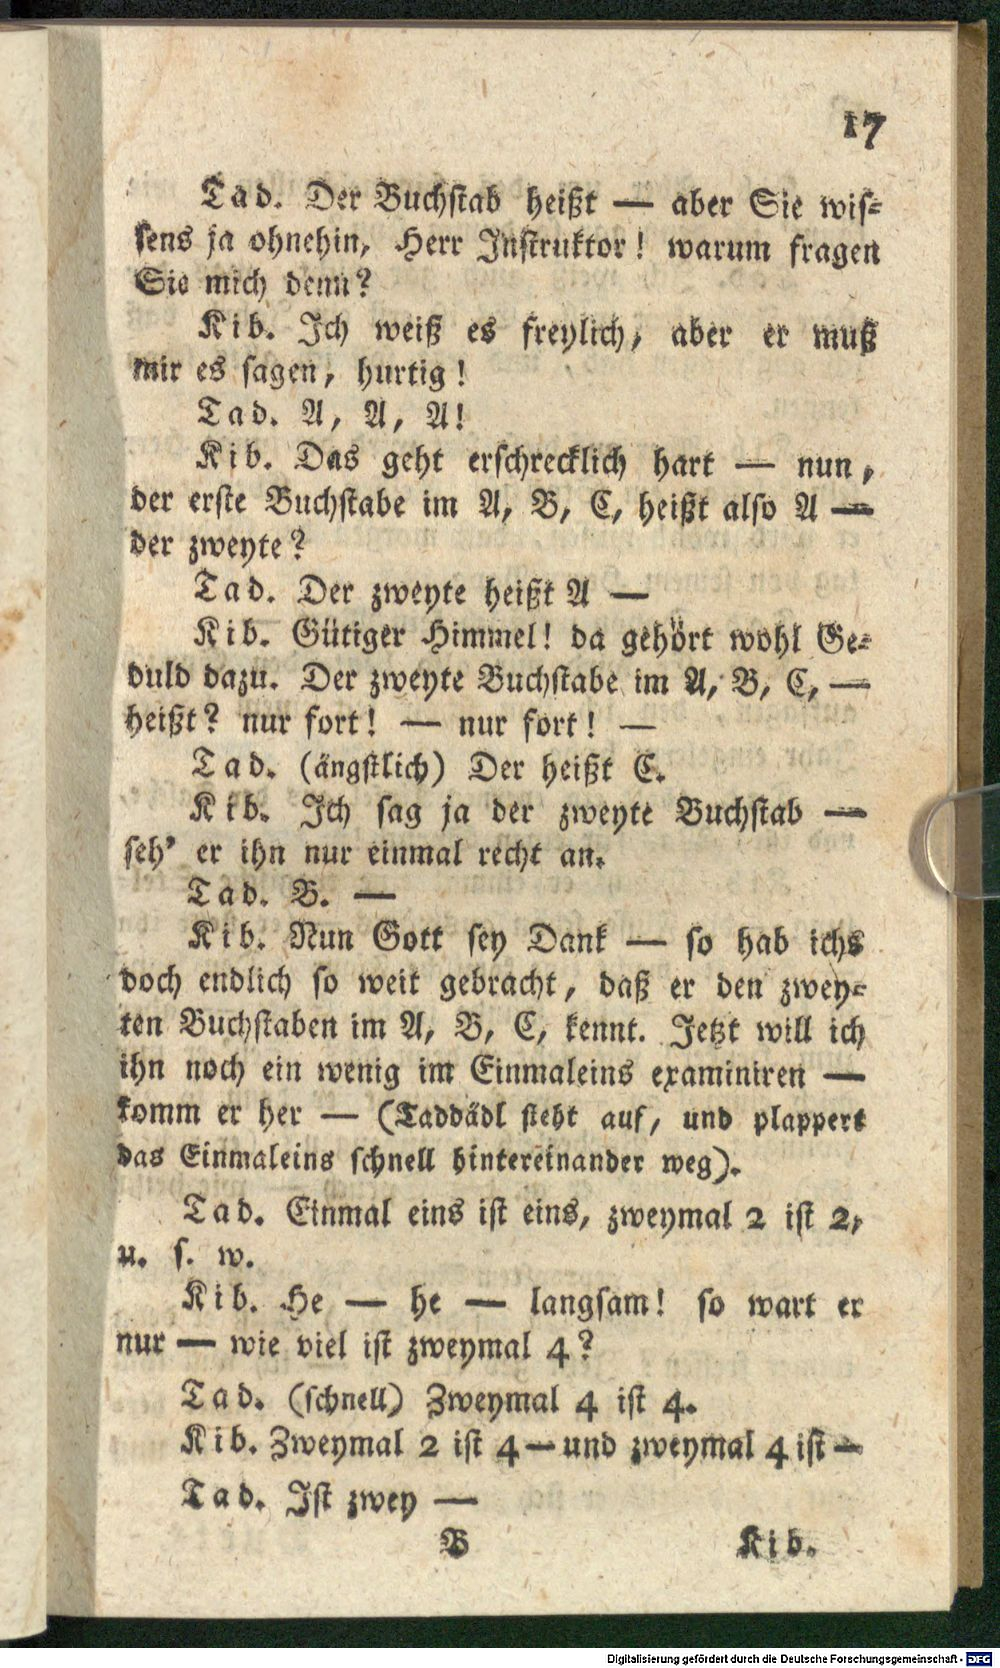 17
Tad. Der Buchstab heißt — aber Sie wis-
sens ja ohnehin, Herr Instruktor! warum fragen
Sie mich denn?
Kib. Ich weiß es freylich, aber er muß
mir es sagen, hurtig!
Tad. A, A, A!
Kib. Das geht erschrecklich hart — nun,
der erste Buchstabe im A, B, C, heißt also A —
der zweyte?
Tad. Der zweyte heißt A —
Kib. Gütiger Himmel! da gehört wohl Ge-
duld dazu. Der zweyte Buchstabe im A, B, C, —
heißt? nur fort! — nur fort! —
Tad. (ängstlich) Der heißt C.
Kib. Ich sag ja der zweyte Buchstab —
seh' er ihn nur einmal recht an.
Tad. B. —
Kib. Nun Gott sey Dank — so hab ichs
doch endlich so weit gebracht, daß er den zwey-
ten Buchstaben im A, B, C, kennt. Jetzt will ich
ihn noch ein wenig im Einmaleins examiniren —
komm er her — (Taddädl steht auf, und plappert
das Einmaleins schnell hintereinander weg).
Tad. Einmal eins ist eins, zweymal 2 ist 2,
u. s. w.
Kib. He — he — langsam! so wart er
nur — wie viel ist zweymal 4?
Tad. (schnell) Zweymal 4 ist 4.
Kib. Zweymal 2 ist 4 — und zweymal 4 ist —
Tad. Ist zwey —
B Kib.
Digitalisierung gefördert durch die Deutsche Forschungsgemeinschaft - DFG